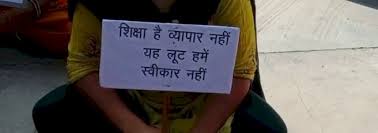 शिक्षा है व्यापार नहीं
यह लूट हमें
स्वीकार नहीं